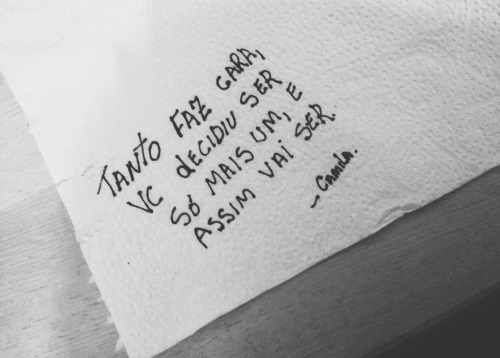 TANTO FAZ CARA,
VC dECIDIU SER
SÓ MAIS UM, E
ASSIM VAI SER.
– Camila.